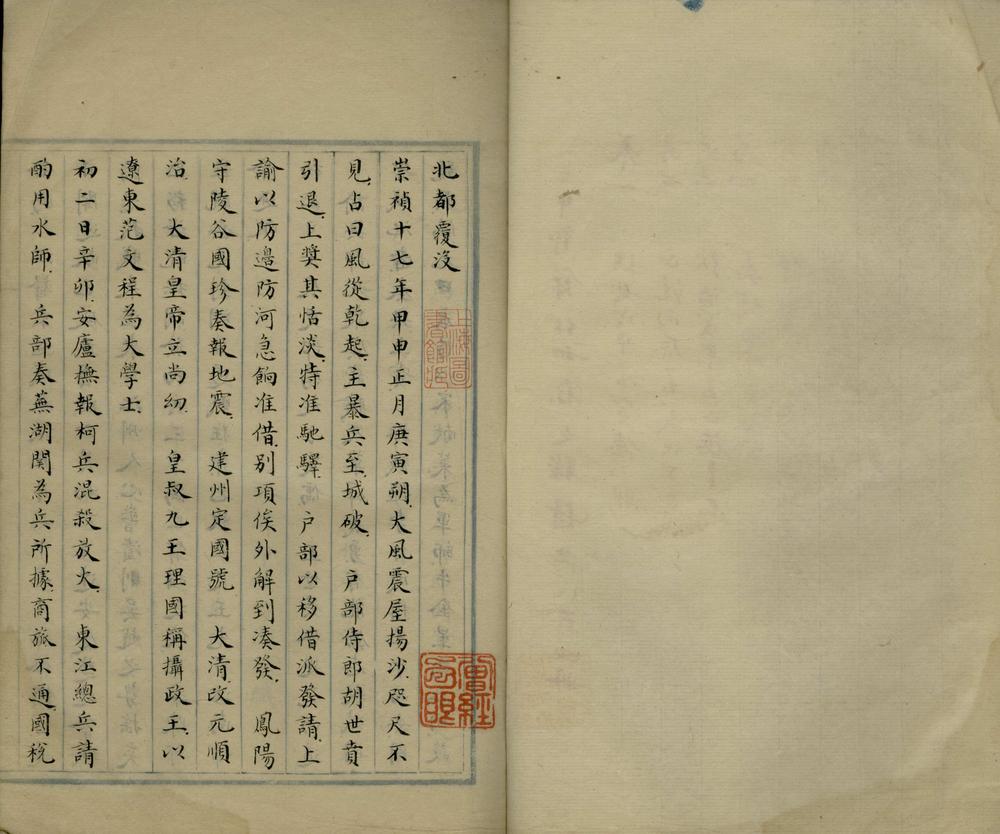 北都覆沒
崇禎十七年甲申正月庚寅朔大風震屋揚沙咫尺不
見占曰風從乾起主暴兵至城破 户部侍郎胡世賁
引退上獎其恬淡特准馳驛 户部以移借派發請上
諭以防邉防河急餉准借别項俟外解到湊發 鳳陽
守陵谷國珍奏報地震 建州定國號 大清改元順
治 大清皇帝立尚幼 皇叔九王理國稱攝政王以
遼東范文程為大學士
初二日辛卯安廬撫報柯兵混殺放火 東江總兵請
酌用水師 兵部奏蕪湖関為兵所據商旅不通國稅
上海圖書館藏
曾經我眼